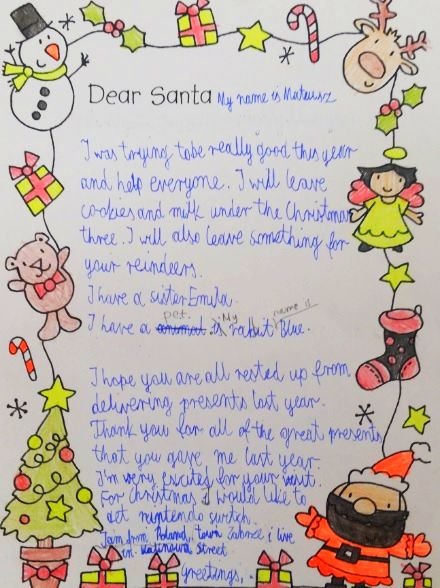 Dear Santa My name is Mateusz
I was trying to be really good this year
and help everyone. I will leave
cookies and milk under the Christmas
three. I will also leave something for
your reindeers.
I have a sister Emila.
I have a animal pet. My rabbit name is Blue.
I hope you are all rested up from
delivering presents last year.
Thank you for all of the great presents
that you gave me last year.
I'm very excited for your visit.
For Christmas I would like to
get nintendo switch.
I am from Poland, town Zabrze i live
in street
Greetings,